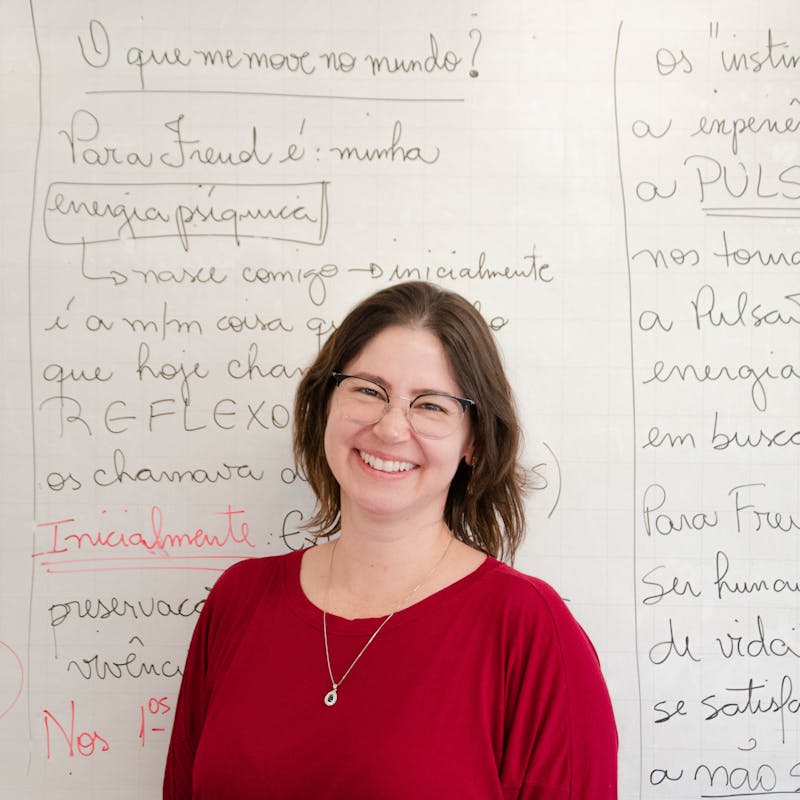 O que me move no mundo?
Para Freud é: minha
energia psíquica
↳ nasce comigo → inicialmente
é a msm coisa
que hoje
REFLEXO
os chamava
Inicialmente:
preservaç
vivênci
Nos 1os
os "instin
a experiê
a PULS
nos torna
a Pulsã
energia
em busca
Para Freu
Ser human
de vida
se satisfa
a não